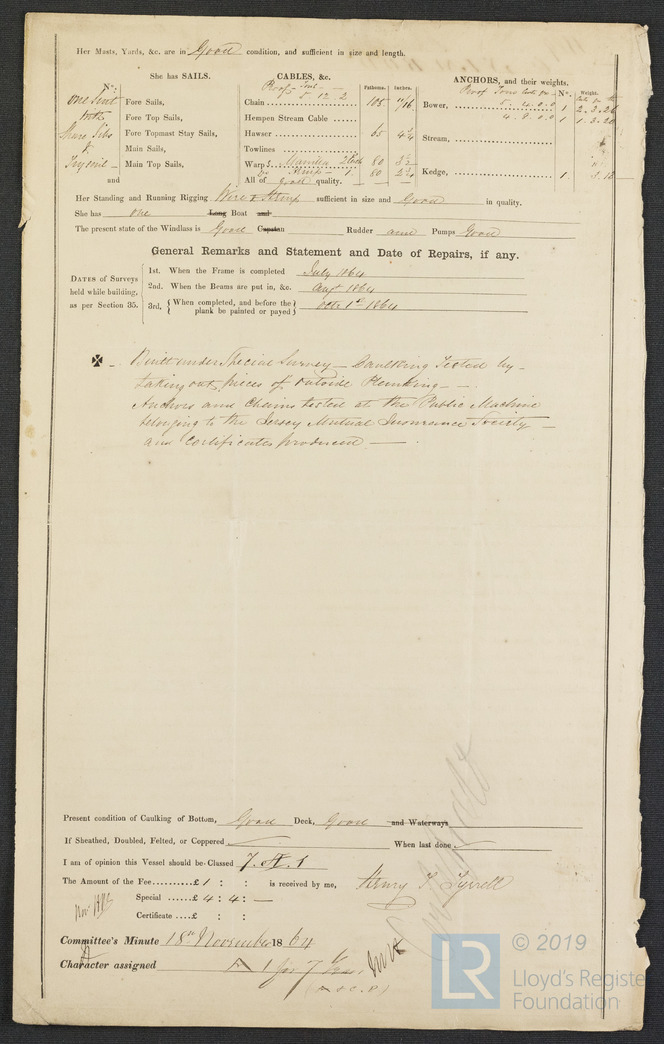 Her Masts, Yards, &c. are in Good condition, and sufficient in size and length.
She has SAILS.
CABLES, &c.
ANCHORS, and their weights.
Nº.
Fathoms.
Inches.
Proof Tons
Nº.
Weight.
One Suit
Fore Sails,
Proof Tons 5 12 2
Chain 105 11/16
Bower, 5.4.0.0 1 2.3.26
both
Fore Top Sails,
Hempen Stream Cable
4.9.0.0 1 1.3.20
Fore Topmast Stay Sails,
Hawser 65 4¾
Stream,
&
Main Sails,
Towlines
Main Top Sails,
Warps Manilla 80
Kedge, 1.
and
80
All of good quality.
Her Standing and Running Rigging Wire & Hemp sufficient in size and Good in quality.
She has one Long Boat and
The present state of the Windlass is Good Capstan Rudder and Pumps Good
General Remarks and Statement and Date of Repairs, if any.
DATES of Surveys
held while building,
as per Section 35.
1st. When the Frame is completed July 1864
2nd. When the Beams are put in, &c. Augt 1864
3rd, { When completed, and before the plank be painted or payed } Octr 1st 1864
Built under Special Survey – Caulking Tested by –
taking out pieces of outside Planking –
Anchors and Chains tested at the Public Machine
belonging to the Jersey Mutual Insurance Society –
and Certificates produced –
Present condition of Caulking of Bottom, Good Deck, Good and Waterways
If Sheathed, Doubled, Felted, or Coppered
When last done
I am of opinion this Vessel should be Classed 7. A. 1
The Amount of the Fee £1 : : is received by me, Henry T. Tyrrell
Special £4 : 4 : –
Certificate £ : :
Committee's Minute 18th November 1864
Character assigned A 1 for 7 Years
© 2019
LR
Lloyd's Registe
Foundation